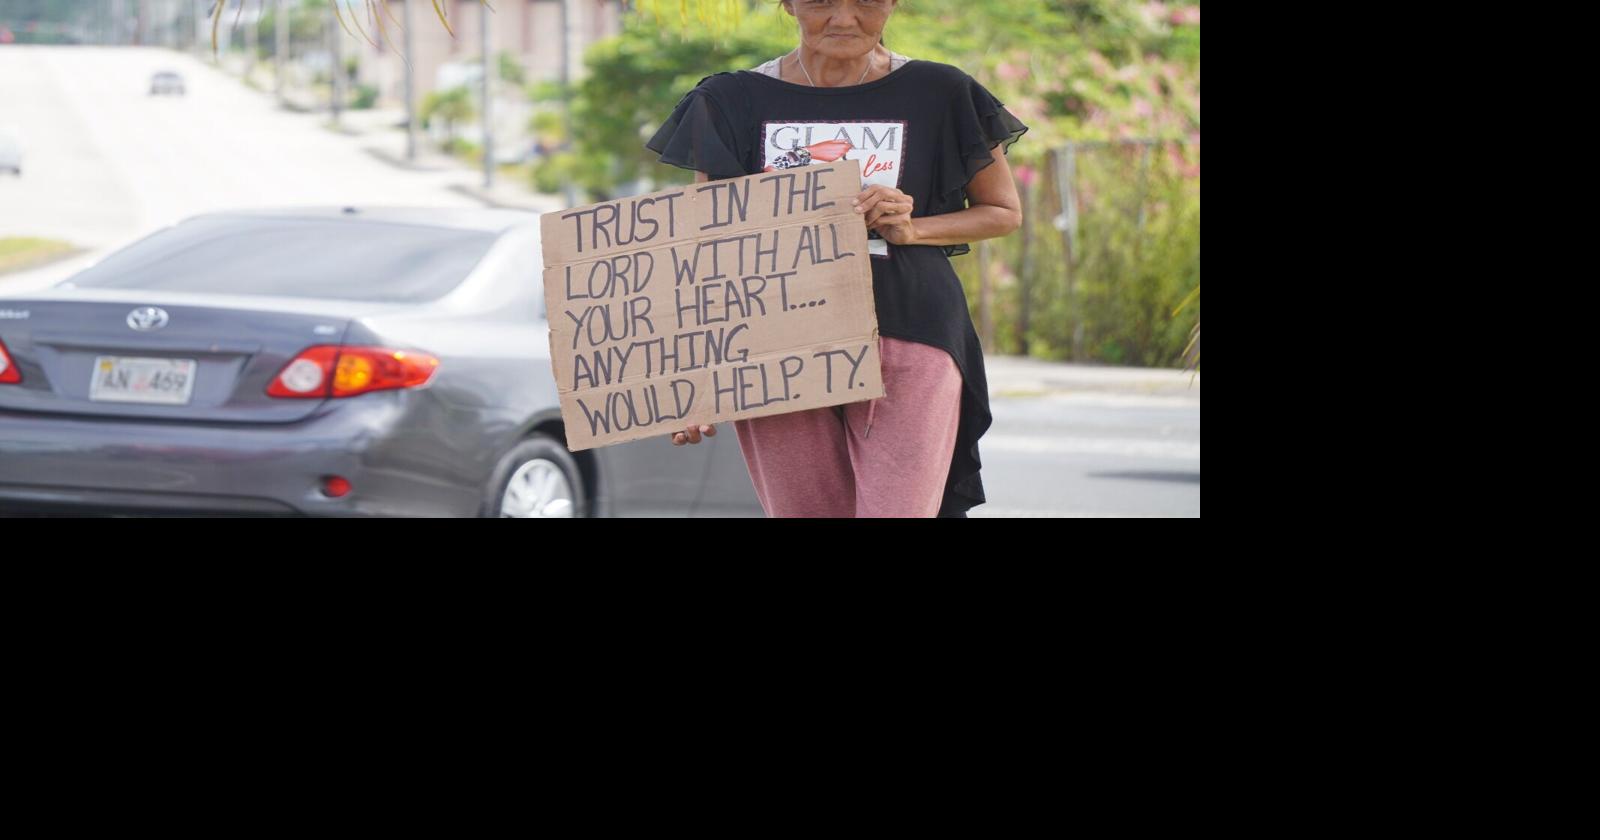 GLAM
less
TRUST IN THE
LORD WITH ALL
YOUR HEART....
ANYTHING
WOULD HELP. TY.
469